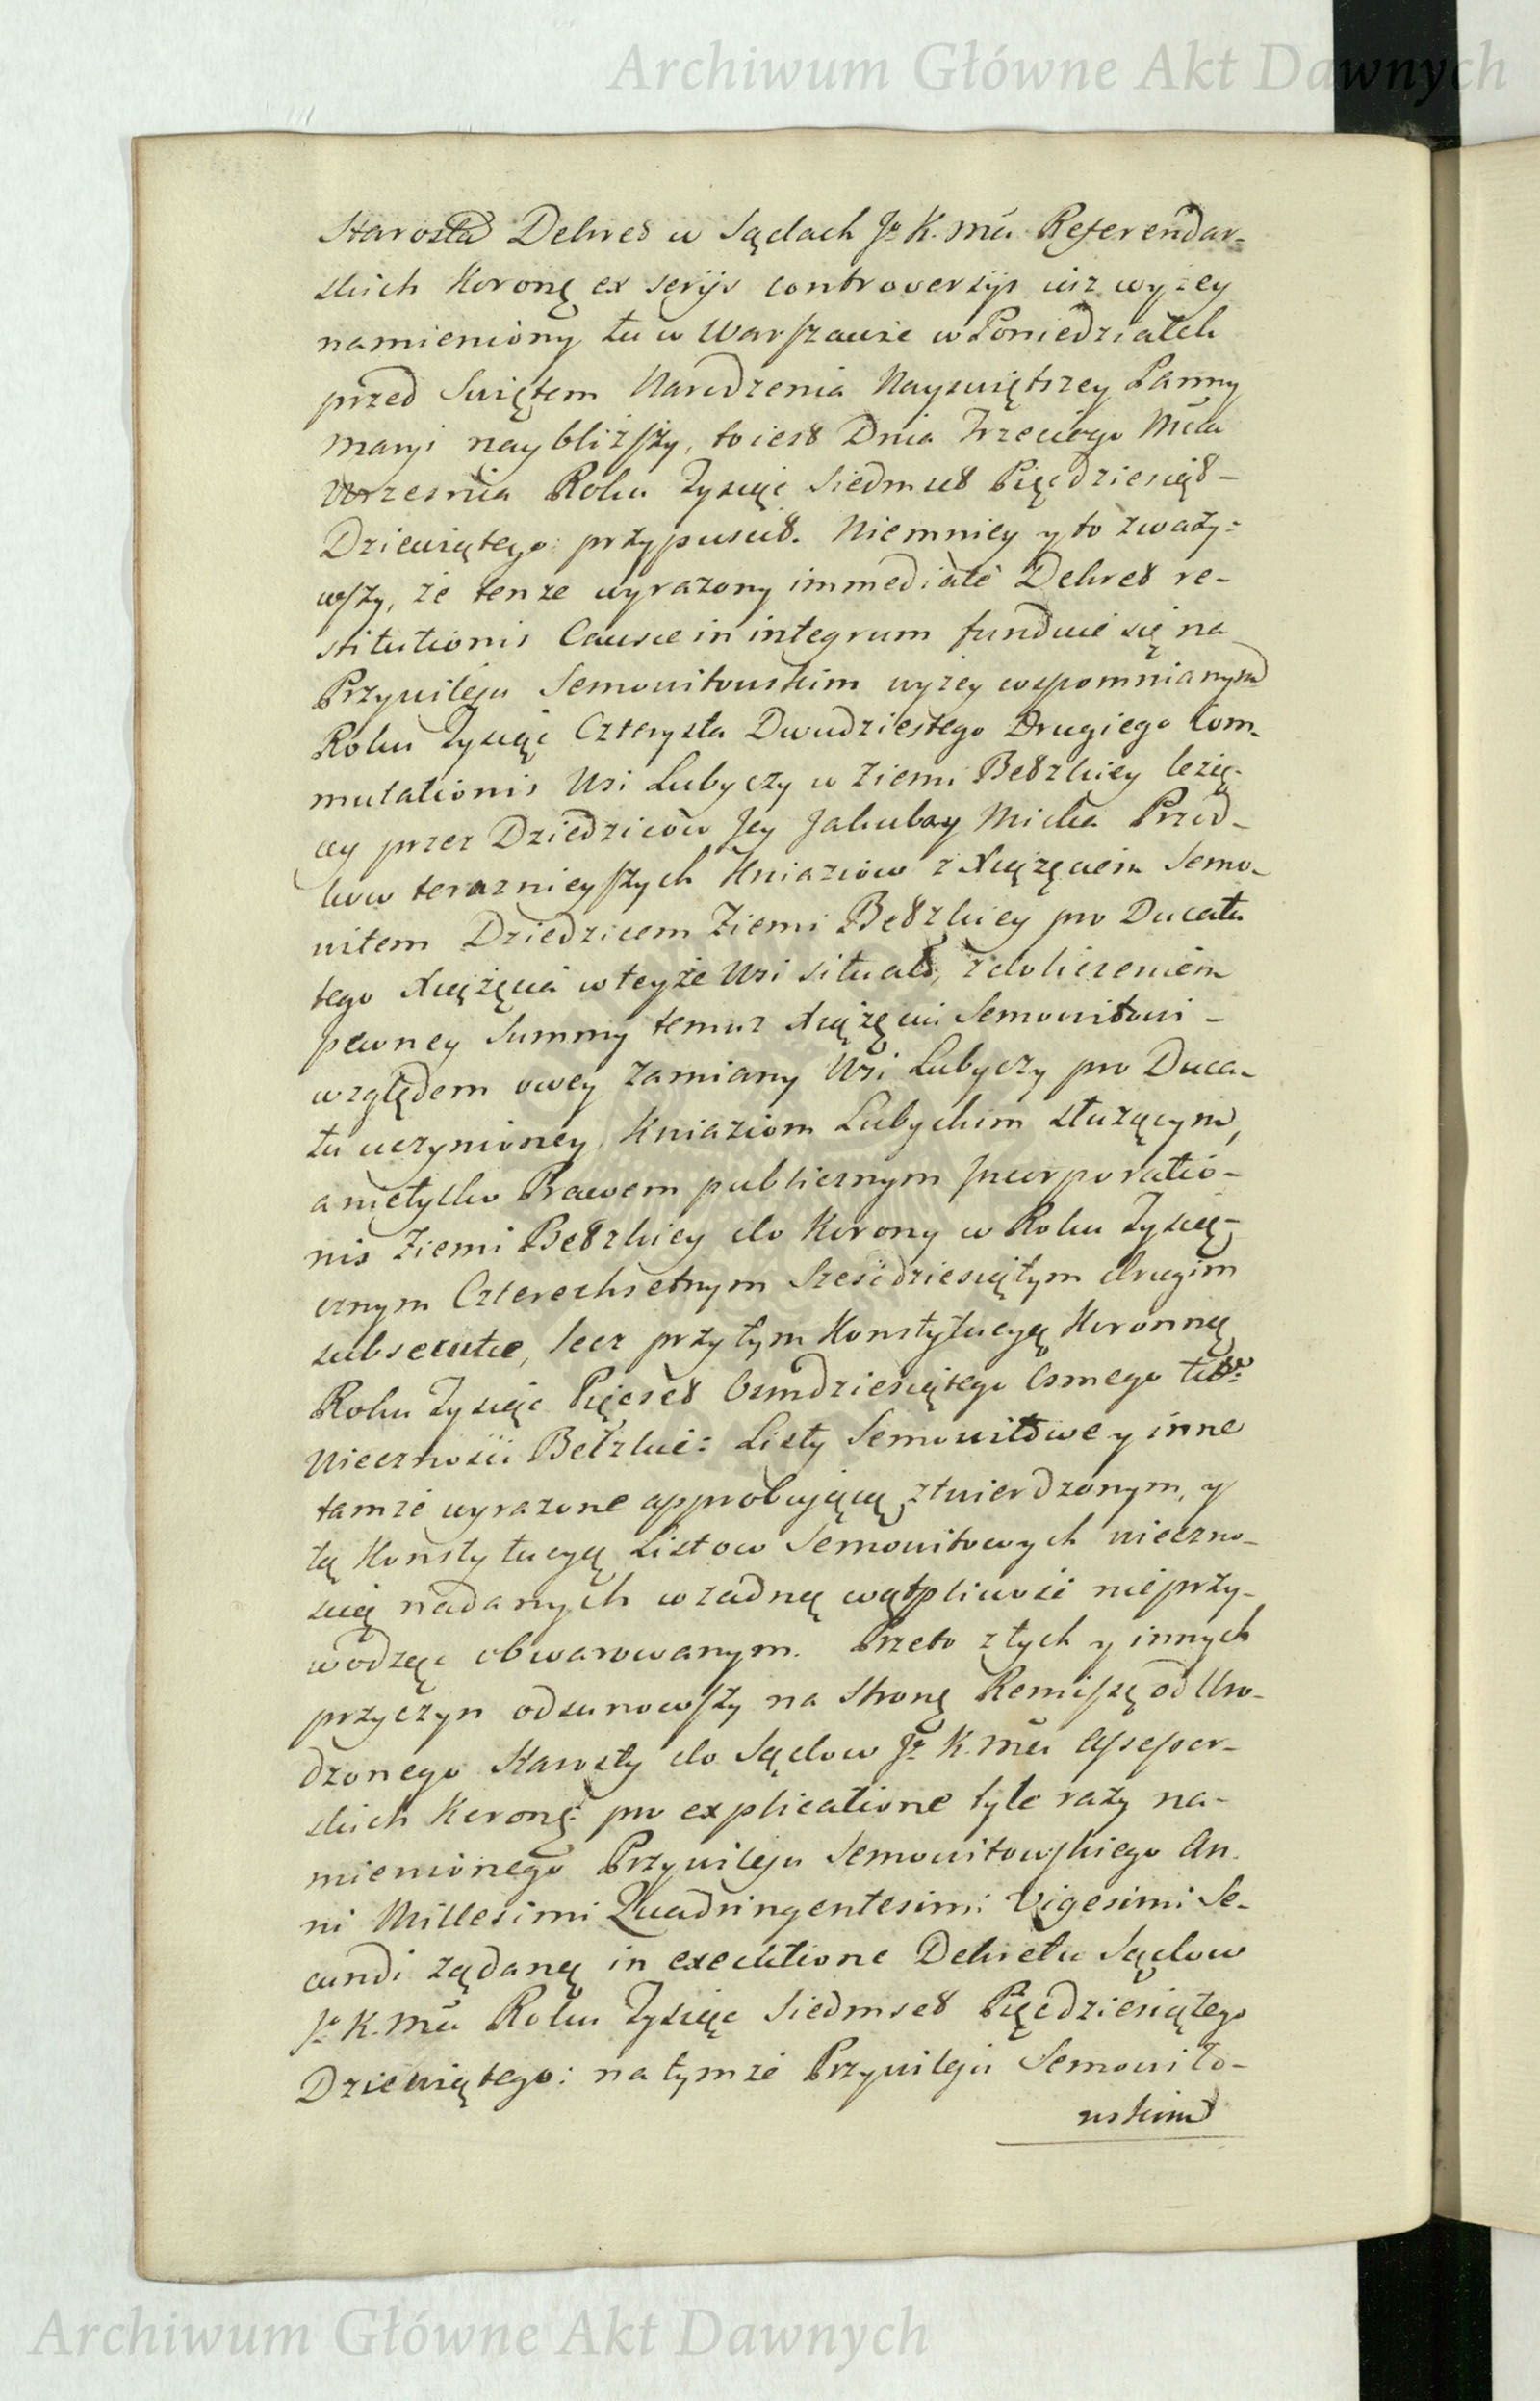 Archiwum Główne Akt Dawnych
Starosta Dekret w Sądach Jo K. Mći Referendar=
skich Koronę ex serijs controversijs iuż wyżey
namieniony tu w Warszawie w Poniedziałek
przed Swiętem Narodzenia Nayswiętszey Panny
Maryi naybliższy, to iest Dnia Trzeciego Mća
Wrzesnia Roku Tysiąc Siedmset Pięćdziesiąt-
Dziewiątego: przypuscił. Niemniey y to zważy=
wszy, że tenże wyrażony immediate Dekret re-
stitutionis Causae in integrum funduie się na
Przywileju Semowitowskim wyżey wspomnianym
Roku Tysiąc Czterysta Dwudziestego Drugiego Com-
mutationis Wsi Lubyczy w Ziemi Bełzkiey leżą-
cey przez Dziedziców Jey Jakuba y Micka Przod-
kow teraznieyszych Kniaziow z Xiążęciem Semo-
witem Dziedzicem Ziemi Bełzkiey pro Ducatu
tego Xiążęcia w teyże Wsi situato, z doliczeniem
pewney Summy temuz Xiążęciu Semowitowi -
względem owey zamiany Wsi Lubyczy pro Duca-
tu uczynioney, Kniaziom Lubyckim służącym,
a nietylko Prawem publicznym Incorporatio-
nis Ziemi Bełzkiey do Korony w Roku Tysią-
cznym Czterechsetnym Sześćdziesiątym drugim
subsecutae, lecz przytym Konstytucyą Koronną
Roku Tysiąc Pięcset Osmdziesiątego Osmego
Wiecznosci Bełzkie: Listy Semowitowe y inne
tamże wyrażone approbuiącą, ztwierdzonym, y
tą Konstytucyą Listow Semowitowych wieczno-
scią nadanych w żadną wątpliwość nieprzy-
wodząc obwarowanym. Przeto z tych y innych
przyczyn odsunowszy na stronę Remissę od Uro-
dzonego Starosty do Sądow Jo K. Mći Assessor-
skich Koronę: pro explicatione tyle razy na-
mienionego Przywileju Semowitowskiego An-
ni Millesimi Quadringentesimi Vigesimi Se-
cundi żądaną in executione Dekretu Sądow
Jo K. Mći Roku Tysiąc Siedmset Pięćdziesiątego
Dziewiątego: na tymże Przywileju Semowito-
wskim
Archiwum Główne Akt Dawnych